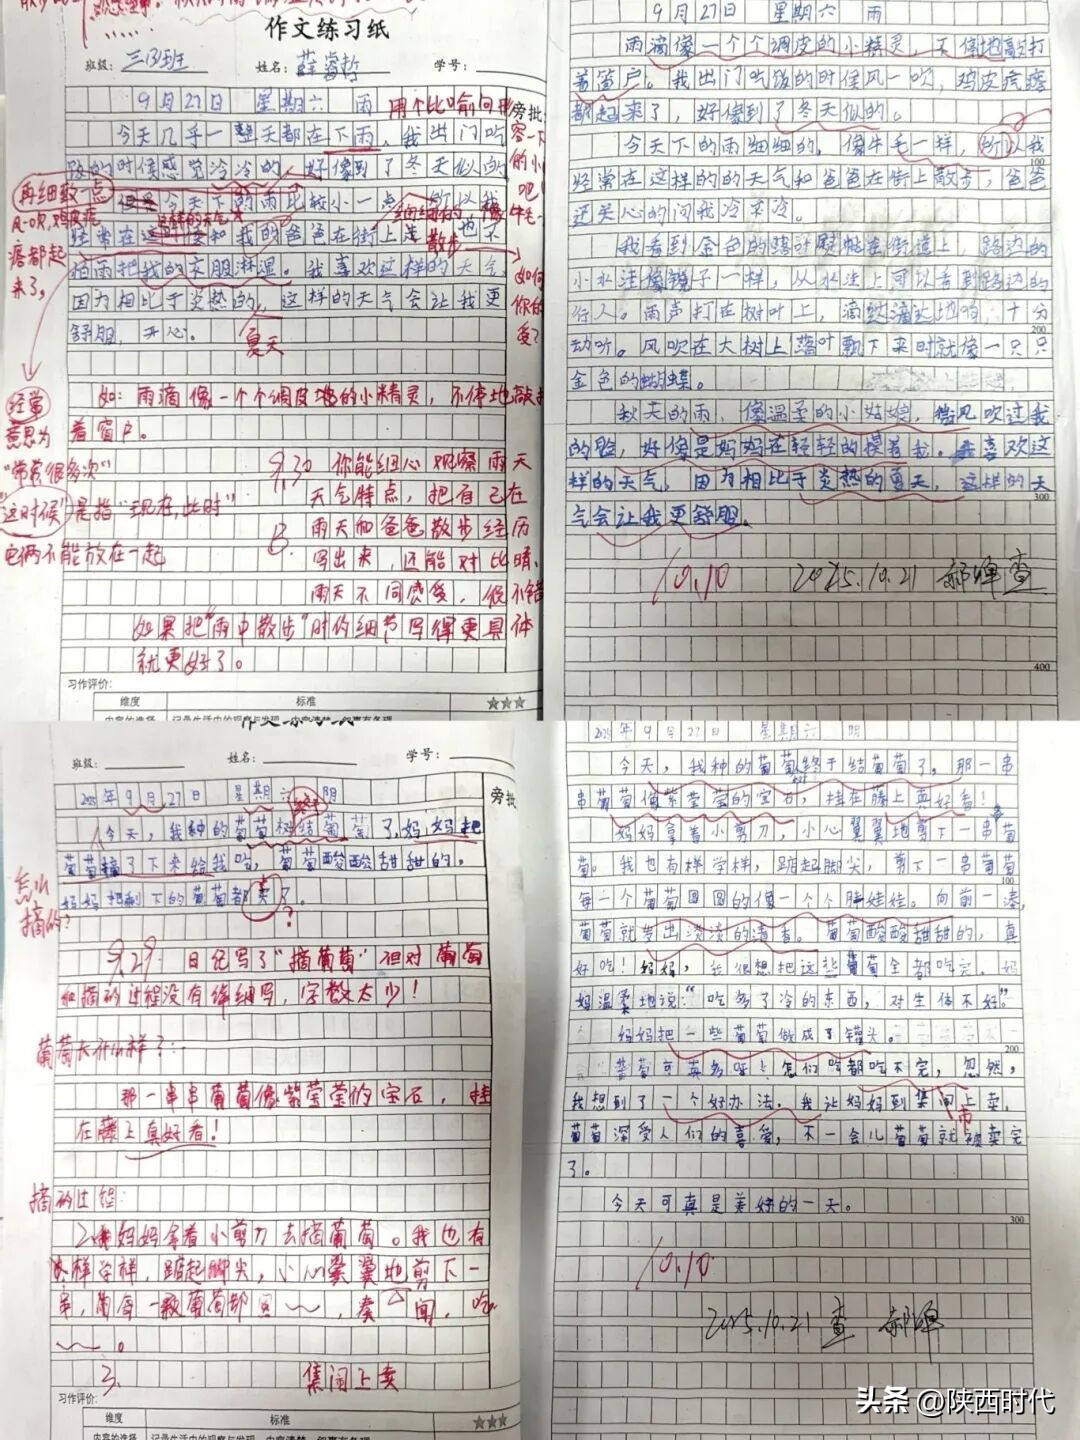 作文练习纸
班级:三(3)班 姓名:薛睿哲 学号:
9月27日 星期六 雨
用个比喻句形
旁批
容一下
的小
吧!
今天几乎一整天都在下雨,我出门吃
饭的时候感觉冷冷的,好像到了冬天似的
再细致一点
风一吹,鸡皮疙
瘩都起
来了。
今天下的雨比较小一点 细细的 像牛毛 所以我
这样的天气
经常在这时候和我的爸爸在街上走 散步 也不
怕雨把我的衣服淋湿。我喜欢这样的天气,
因为相比于炎热的,这样的天气会让我更
舒服,开心。
夏天
如何
你的
受?
如:雨滴像一个个调皮地的小精灵,不停地敲打
着窗户。
经常
意思为
"常常很多次"
"这时候"是指"现在,此时"
它俩不能放在一起
9.30 你能细心观察雨天
天气特点,把自己在
雨天和爸爸散步经历
B.
写出来,还能对比晴、
雨天不同感受,很不错
如果把"雨中散步"时的细节写得更具体
就更好了。
习作评价:
维度 标准 ★★★
9月27日 星期六 雨
雨滴像一个个调皮的小精灵,不停地敲打
着窗户。我出门吃饭的时候风一吹,鸡皮疙瘩
都起来了,好像到了冬天似的。
今天下的雨细细的,像牛毛一样,所以我
100
经常在这样的的天气和爸爸在街上散步,爸爸
还关心的问我冷不冷。
我看到金色的落叶贴在街道上,路边的
小水洼像镜子一样,从水洼上可以看到路边的
行人。雨声打在树叶上,滴哒滴哒地响,十分
200
动听。风吹在大树上落叶飘下来时就像一只只
金色的蝴蝶。
秋天的雨,像温柔的小姑娘,微风吹过我
的脸,好像是妈妈在轻轻的摸着我。我喜欢这
样的天气,因为相比于炎热的夏天,这样的天
300
气会让我更舒服。
10.10 2025.10.21 郝婵 查
400
作文练习纸
班级: 姓名: 学号:
旁批
2025年9月27日 星期六 阴
终于
今天,我种的葡萄树结葡萄了,妈妈把
葡萄摘了下来给我吃,葡萄酸酸甜甜的,
妈妈把剩下的葡萄都卖了。
怎么
摘的?
?
9.29. 日记写了"摘葡萄"但对葡萄
和摘的过程没有详细写,字数太少!
葡萄长什么样?
那一串串葡萄像紫莹莹的宝石,挂
在藤上真好看!
摘的过程:
2.妈妈拿着小剪刀去摘葡萄。我也有
样学样,踮起脚尖,小心翼翼地剪下一
串,葡萄一颗葡萄都圆~~,凑一闻,吃
~~。
3. 集闹上卖
习作评价:
维度 标准 ★★★
2025年9月27日 星期六 阴
今天,我种的葡萄终于结葡萄了,那一串
串葡萄像紫莹莹的宝石,挂在藤上真好看!
妈妈拿着小剪刀,小心翼翼地剪下一串葡
萄。我也有样学样,踮起脚尖,剪下一串葡萄
100
每一个葡萄圆圆的像一个个胖娃娃。向前一凑,
葡萄就发出淡淡的清香。葡萄酸酸甜甜的,真
好吃!妈妈,我很想把这些葡萄全都吃完。妈
妈温柔地说:"吃多了冷的东西,对生体不好。"
妈妈把一些葡萄做成了罐头。
200
葡萄可真多呀!怎们吃都吃不完,忽然,
我想到了一个好办法。我让妈妈到集闹上卖,
市
葡萄深受人们的喜爱,不一会儿葡萄就被卖完
了。
今天可真是美好的一天。
300
10.10
2025.10.21 查 郝婵
头条 @陕西时代